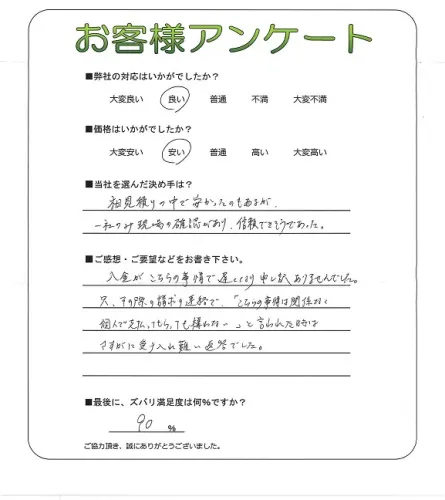 お客様アンケート
■弊社の対応はいかがでしたか？
大変良い 良い 普通 不満 大変不満
■価格はいかがでしたか？
大変安い 安い 普通 高い 大変高い
■当社を選んだ決め手は？
相見積りの中で安かったのもあるが、
一社のみ現場の確認があり、信頼できそうであった。
■ご感想・ご要望などをお書き下さい。
入金がこちらの事情で遅くなり申し訳ありませんでした。
又、その際の請求の連絡で、「こちらの事情は関係なく
個人で支払ってもらっても構わない…」と言われた時は
さすがに受け入れ難い返答でした。
■最後に、ズバリ満足度は何%ですか？
90 %
ご協力頂き、誠にありがとうございました。